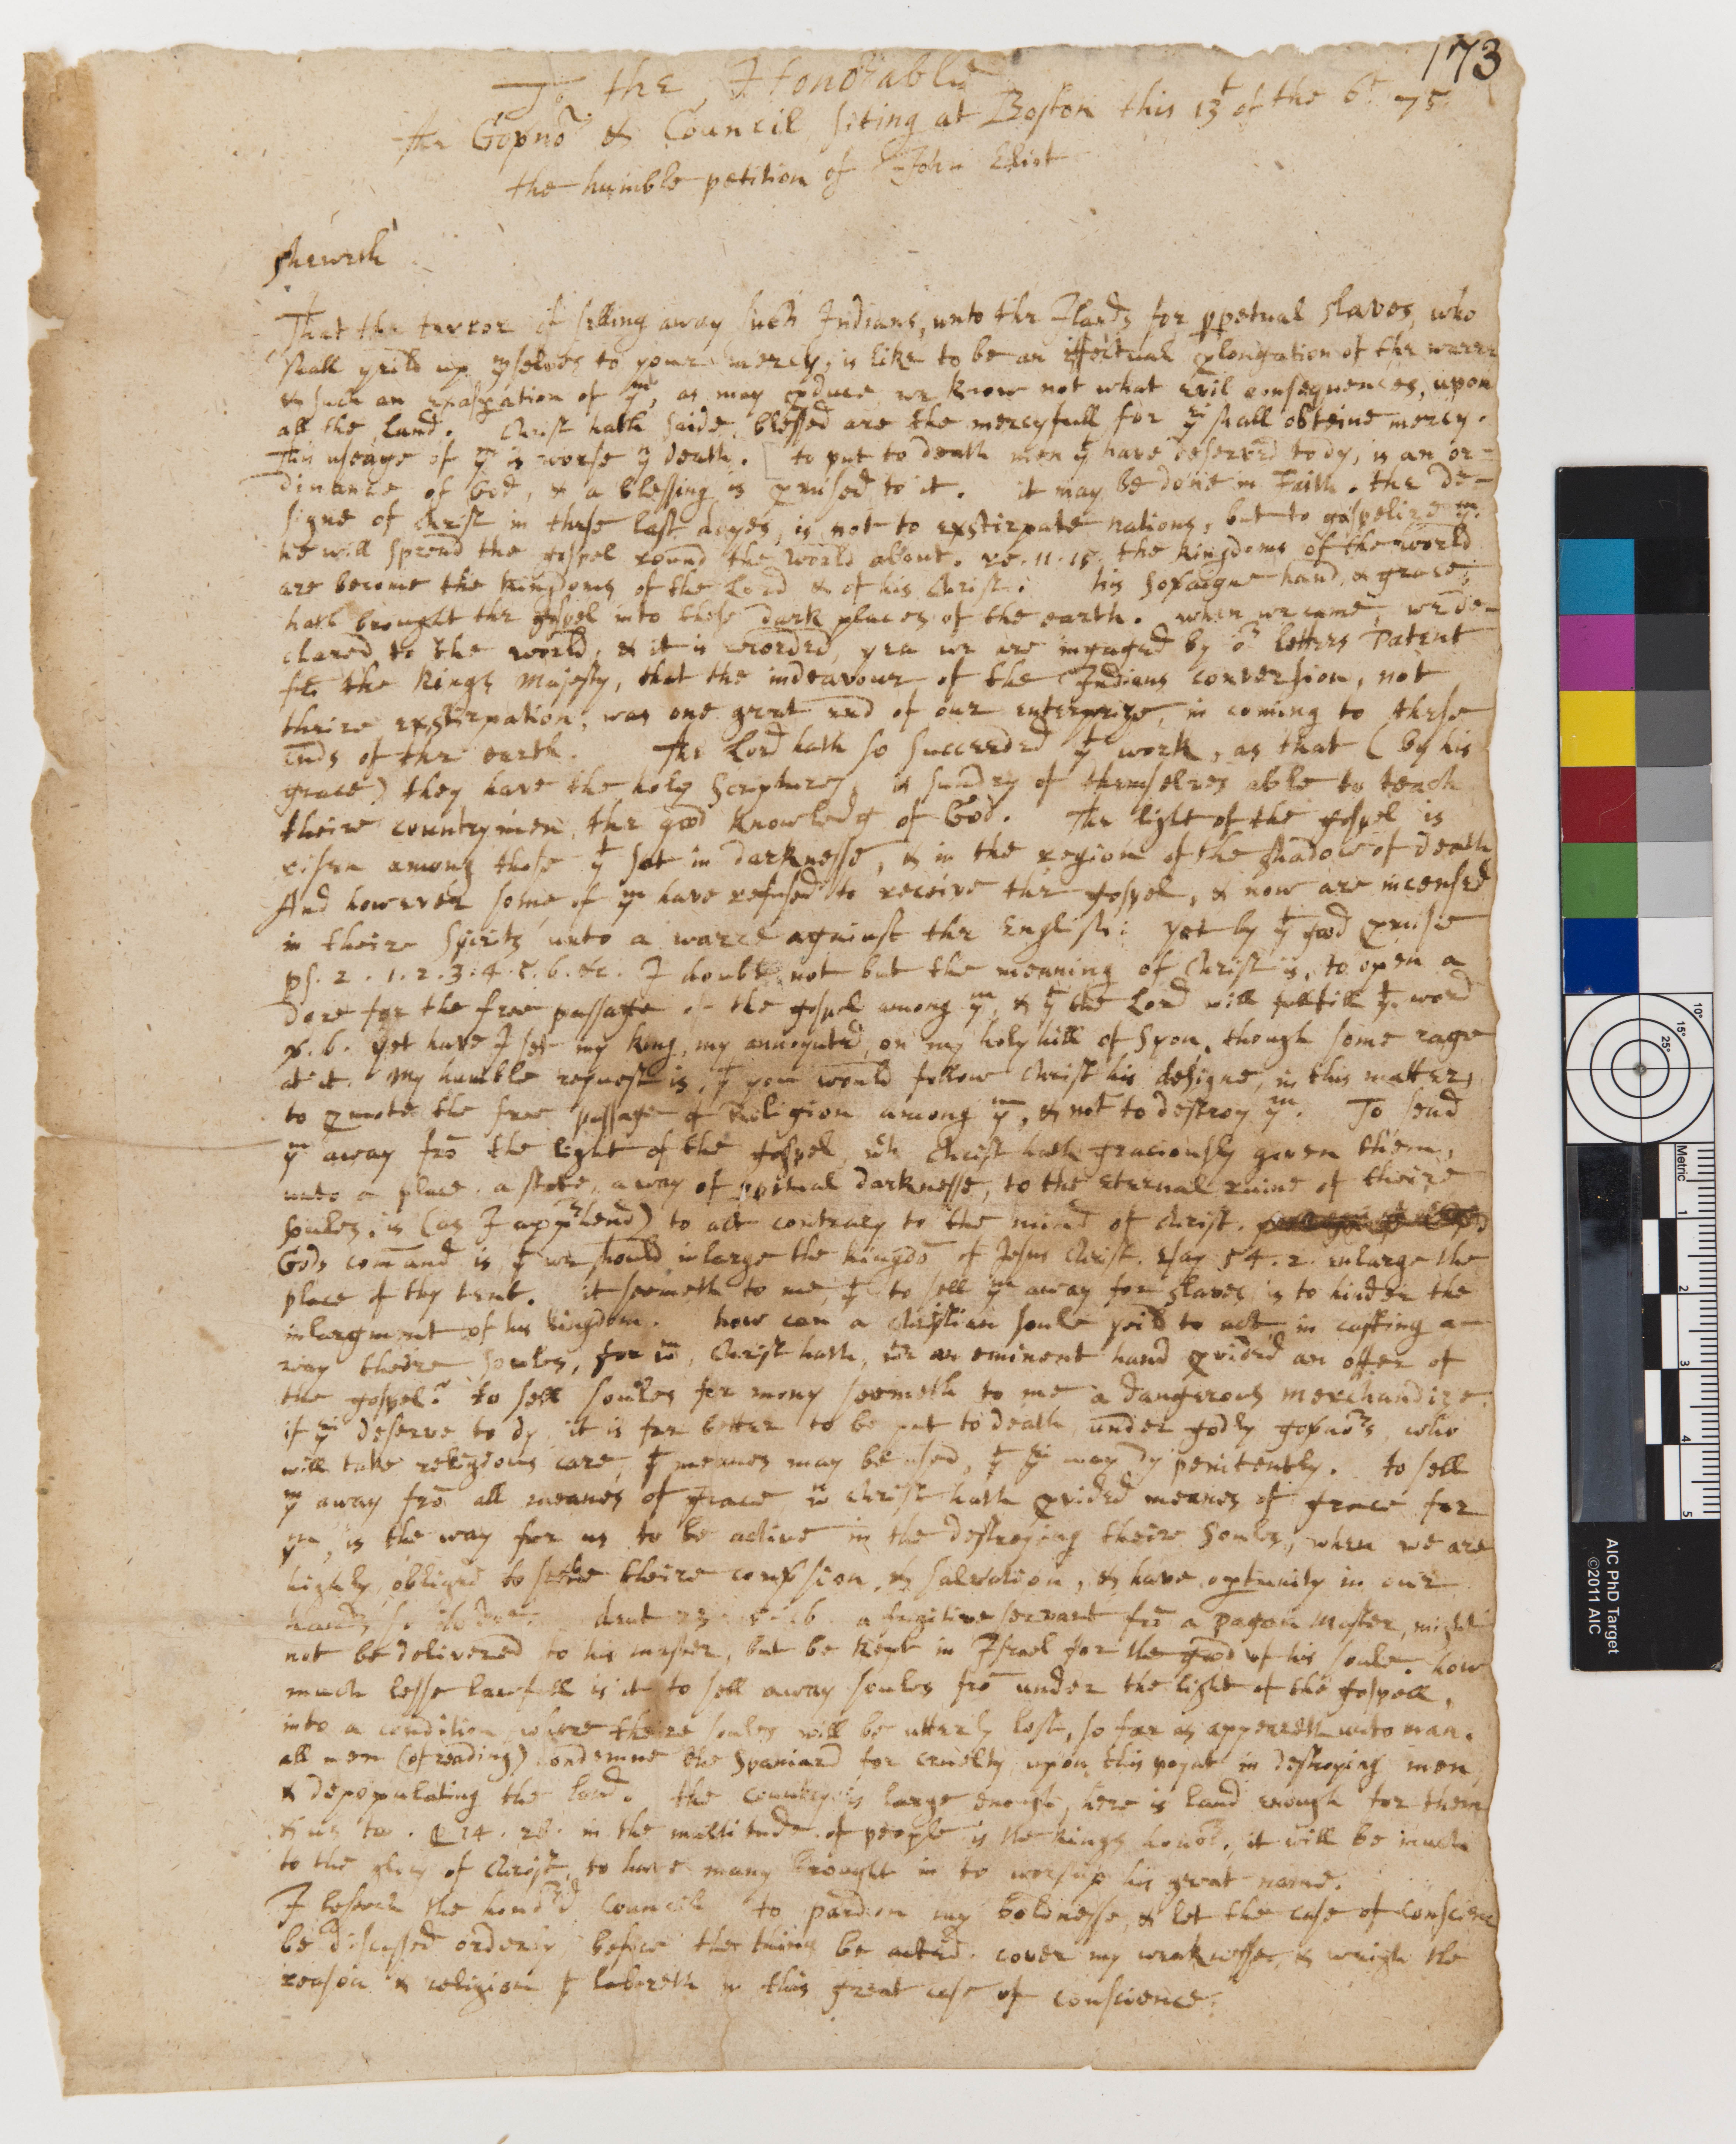 173
To the Honorable
the Govnor & Council, siting at Boston this 13t of the 6t 75
the humble petition of John Eliot
sheweth
That the terror of selling away such Indians, unto the Ilands for ppetual slaves, who
shall yeild up ymselves to your mercy, is like to be an effectual plongation of the warre
& such an exaspation of ym, as may pduce we know not what evil consequences, upon
all the land. Christ hath saide, blessed are the mercyfull for yei shall obteine mercy.
This useage of ym is worse yn death. to put to death men yt have deserved to dy, is an or-
dinance of God, & a blessing is pmised to it. it may be done in Faith. the de-
signe of Christ in these last dayes, is not to exstirpate nations, but to gospelize ym.
he will spread the gospel round the world about. re. 11. 15. the kingdoms of the world
are become the kingdoms of the Lord & of his Christ. his Sovraigne hand, & grace,
hath brought the gospel into these dark places of the earth. when we came, we de-
clared to the world, & it is recorded, yea we are ingaged by or letters Patent
frō the kings Majesty, that the indeavour of the Indians conversion, not
theire exstirpation, was one great end of our enterprize, in coming to these
ends of the earth. The Lord hath so succeeded yt work, as that (by his
grace) they have the holy Scriptures, & sundry of themselves able to teach
theire countrymen, the good knowledg of God. The light of the gospel is
risen among those yt sat in darknesse, & in the region of the shadow of death
And however some of ym have refused to receive the gospel, & now are incensed
in theire spirits unto a warre against the English: yet by yt good pmise
ps. 2. 1. 2. 3. 4. 5. 6. &c. I doubt not but the meaning of Christ is, to open a
dore for the free passage of the gospel among ym, & yt the Lord will fullfill yt word
v. 6. yet have I set my king, my annoynted, on my holy hill of Syon, though some rage
at it. My humble request is, yt you would follow Christ his designe, in this matter,
to pmote the free passage of Religion among ym, & not to destroy ym. To send
ym away frō the light of the gospel, wch Christ hath graciously given them,
unto a place, a state, a way of ppetual darknesse, to the eternal ruine of theire
soules, is (as I apprhend) to act contrary to the mind of Christ.
Gods comand is, yt we should inlarge the kingdō of Jesus Christ. Esay 54. 2. enlarge the
place of thy tent. it seemeth to me, yt to sell ym away for slaves, is to hinder the
inlargment of his kingdom. how can a Christian soule yeild to act, in casting a-
way theire soules, for wm, Christ hath, wth an eminent hand pvided an offer of
the gospel? to sell soules for mony seemeth to me a dangerous merchandize.
if yei deserve to dy, it is far better to be put to death, under godly govnors, who
will take religious care, yt meanes may be used, yt yei may dy penitently. to sell
ym away frō all meanes of grace wn Christ hath pvided meanes of grace for
ym, is the way for us to be active in the destroying theire soules, when we are
highly obliged to seeke theire convsion, & salvation, & have optunity in our
hands so to doe. deut 23. 15-16. a fugitive servant frō a pagan Master, might
not be delivered to his master, but be kept in Israel for the good of his soule. how
much lesse lawfull is it to sell away soules frō under the light of the gospell,
into a condition, where theire soules will be utterly lost, so far as appeareth unto man.
all men (of reading) condemne the Spaniard for cruelty, upon this poynt in destroying men,
& depopulating the land. the country is large enough, here is land enough for them
& us too. p 14. 28. in the multitude of people is the kings honor. it will be much
to the glory of Christ, to have many brought in to worship his great name.
I beseech the honrd Council to pardon my boldnesse, & let the case of conscience
be discussed orderly, before the thing be acted. cover my weaknesse, & weigh the
reason & religion yt laboreth in this great case of conscience.
Metric
10°
15°
25°
1
2
3
4
5
AIC PhD Target
©2011 AIC